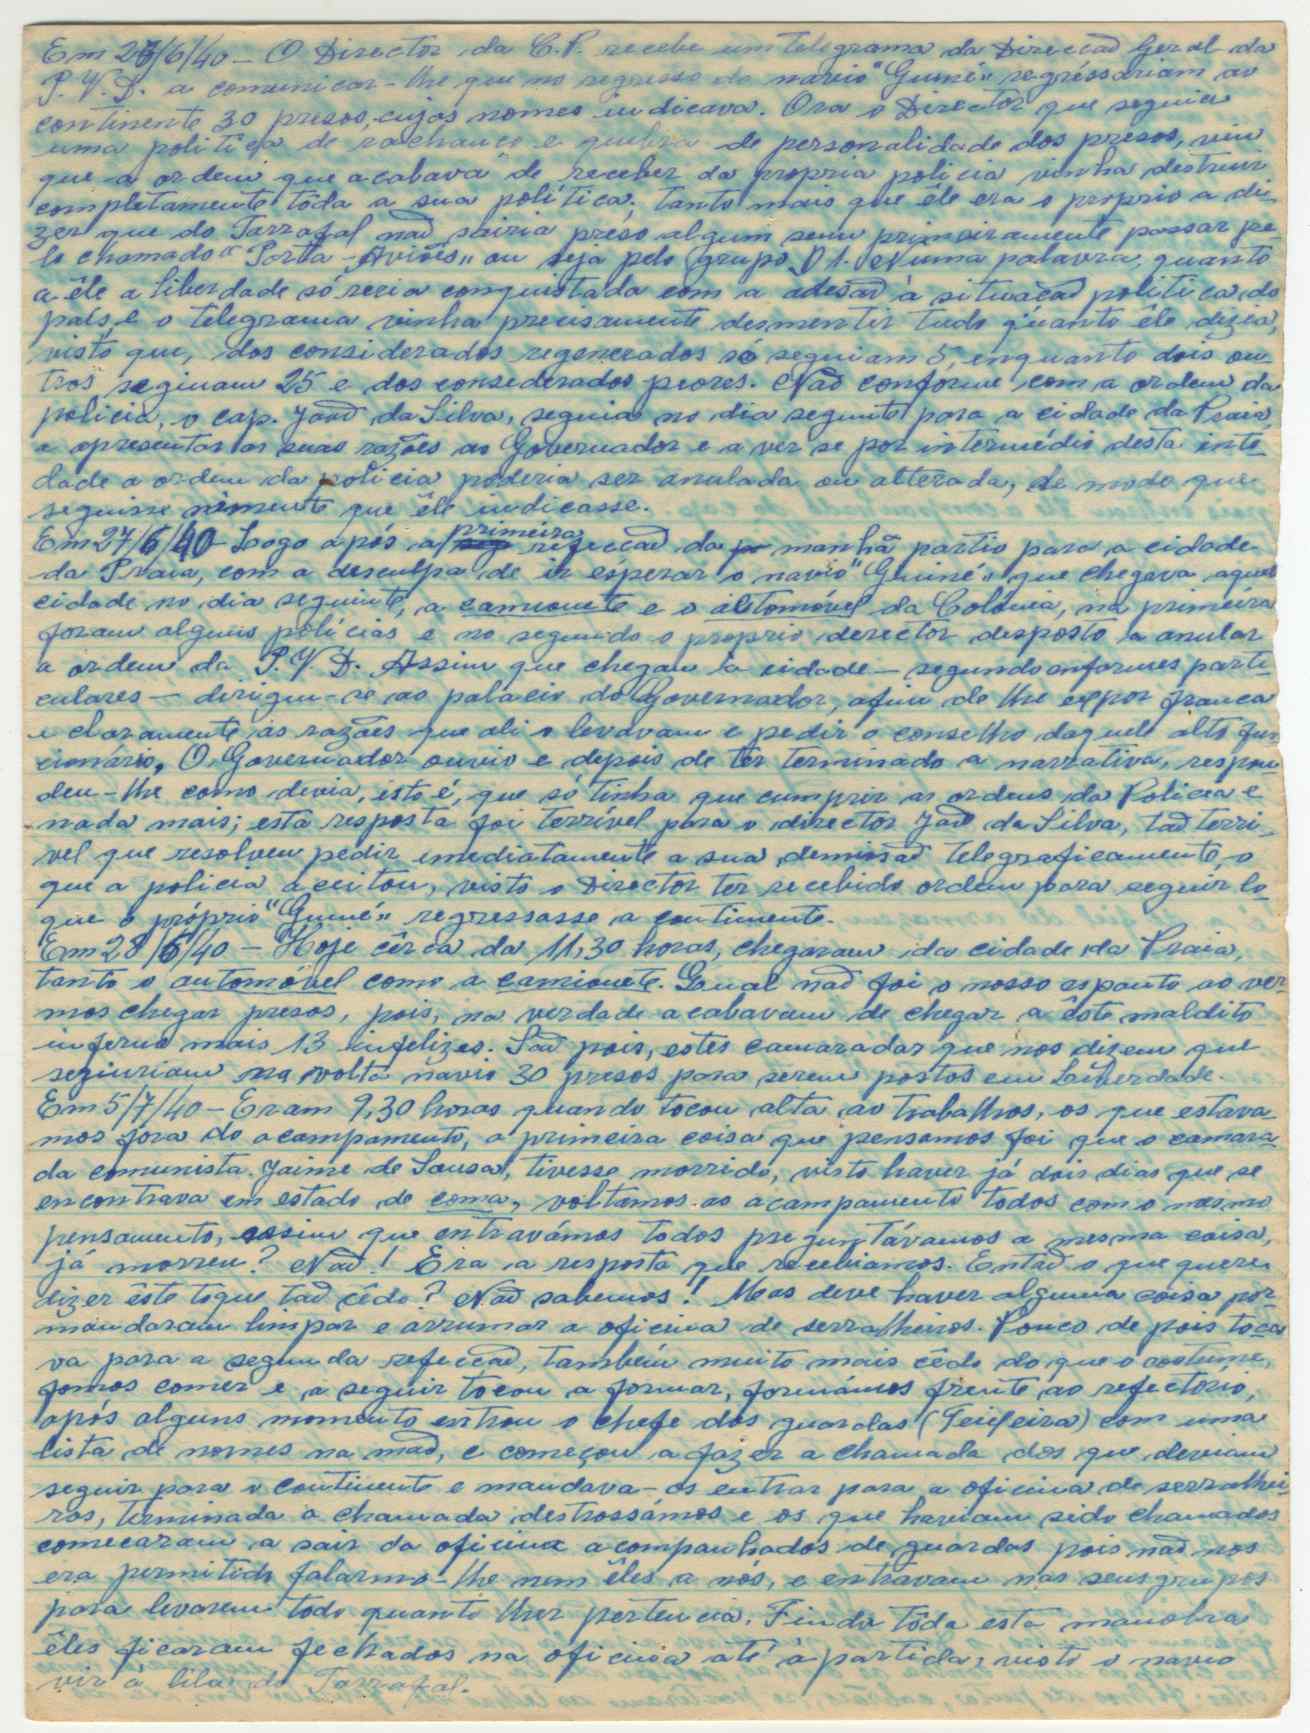 Em 26/6/40 – O Director da C.P. recebe um telegrama da Direcção Geral da
P.V.D. a comunicar-lhe que no regresso do navio "Guiné" regréssariam ao
continente 30 presos, cujos nomes indicava. Ora o Director que seguia
uma politica de rachanço e quebra de personalidade dos presos, viu
que a ordem que acabava de receber da propria policia vinha destruir
completamente tôda a sua política; tanto mais que êle era o proprio a di-
zer que do Tarrafal não sairia prêso algum sem primeiramente passar pe-
lo chamado "Porta-Aviões" ou seja pelo grupo D 1. Numa palavra, quanto
a êle a liberdade só seria conquistada com a adesão à situação politica do
país, e o telegrama vinha precisamente desmentir tudo quanto êle dizia,
visto que, dos considerados regenerados só seguiam 5, enquanto dois ou-
tros seguiam 25 e dos considerados peores. Não conforme com a ordem da
policia, o cap. João da Silva, seguia no dia seguinte para a cidade da Praia,
a apresentar as suas razões ao Governador e a ver se por intermédio desta inti-
dade a ordem da policia poderia ser anulada ou alterada, de modo que
seguisse sómente que êle indicasse.
Em 27/6/40 – Logo após a primeira refeccão da manhã partio para a cidade
da Praia, com a desculpa de ir ésperar o navio "Guiné" que chegava aquela
cidade no dia seguinte, a camionete e o automóvel da Colónia, na primeira
foram alguns polícias e no segundo o proprio derector desposto a anular
a ordem da P.V.D. Assim que chegam à cidade – segundo informes parti-
culares – dirigiu-se ao palácio do Governador, afim de lhe expor franca
e claramente as razões que ali o levavam e pedir o conselho daquele alto fun-
cionário. O Governador ouvio e depois de ter terminado a narrativa, respon-
deu-lhe como devia, isto é, que só tinha que cumprir as ordens da Policia e
nada mais; esta resposta foi terrivel para o director João da Silva, tão terri-
vel que resolveu pedir imediatamente a sua demissão telegraficamente o
que a policia aceitou, visto o Director ter recebido ordem para seguir lo-
go que o próprio "Guiné" regressasse a continente.
Em 28/6/40 – Hoje cêrca da 11,30 horas, chegaram da cidade da Praia,
tanto o automóvel como a camionete. Qual não foi o nosso espanto ao ver-
mos chegar presos, pois, na verdade acabavam de chegar a êste maldito
inferno mais 13 infelizes. São pois, estes camaradas que nos dizem que
seguiriam na volta návio 30 presos para serem postos em Liberdade.
Em 5/7/40 – Eram 9,30 horas quando tocou alta ao trabalhos, os que estava-
mos fóra do acampamento, a primeira coisa que pensamos foi que o camara-
da comunista Jaime de Sousa, tivesse morrido, visto haver já dois dias que se
encontrava em estado de coma, voltamos ao acampamento todos com o mesmo
pensamento, assim que entravámos todos preguntávamos a mesma coisa,
já morreu? Não! Era a resposta que recebiamos. Então o que quere
dizer êste toque tão cêdo? Não sabemos! Mas deve haver alguma coisa por-
mandaram limpar e arrumar a oficina de serralheiros. Pouco de pois toca-
va para a segunda refeccão, também muito mais cêdo do que o costume,
fomos comer e a seguir tocou a formar, formámos frente ao refectorio,
após alguns momento entrou o chefe dos guardas (Teixeira) com uma
lista de nomes na mão, e começou a fazer a chamada dos que deviam
seguir para o continente e mandava-os entrar para a oficina de serralhei-
ros, terminada a chamada destrossámos e os que haviam sido chamados
comecaram a sair da oficina acompanhados de guardas pois não nos
era permitido falarmo-lhe nem êles a nós, e entravam nas seus grupos
para levarem todo quanto lher pertencia. Finda tôda esta manobra
êles ficaram fechados na oficina até à partida, visto o navio
vir à lila do Tarrafal.